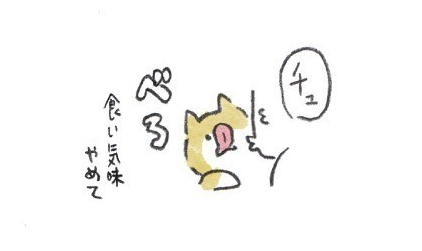 チュ
べろ
食い気味
やめて